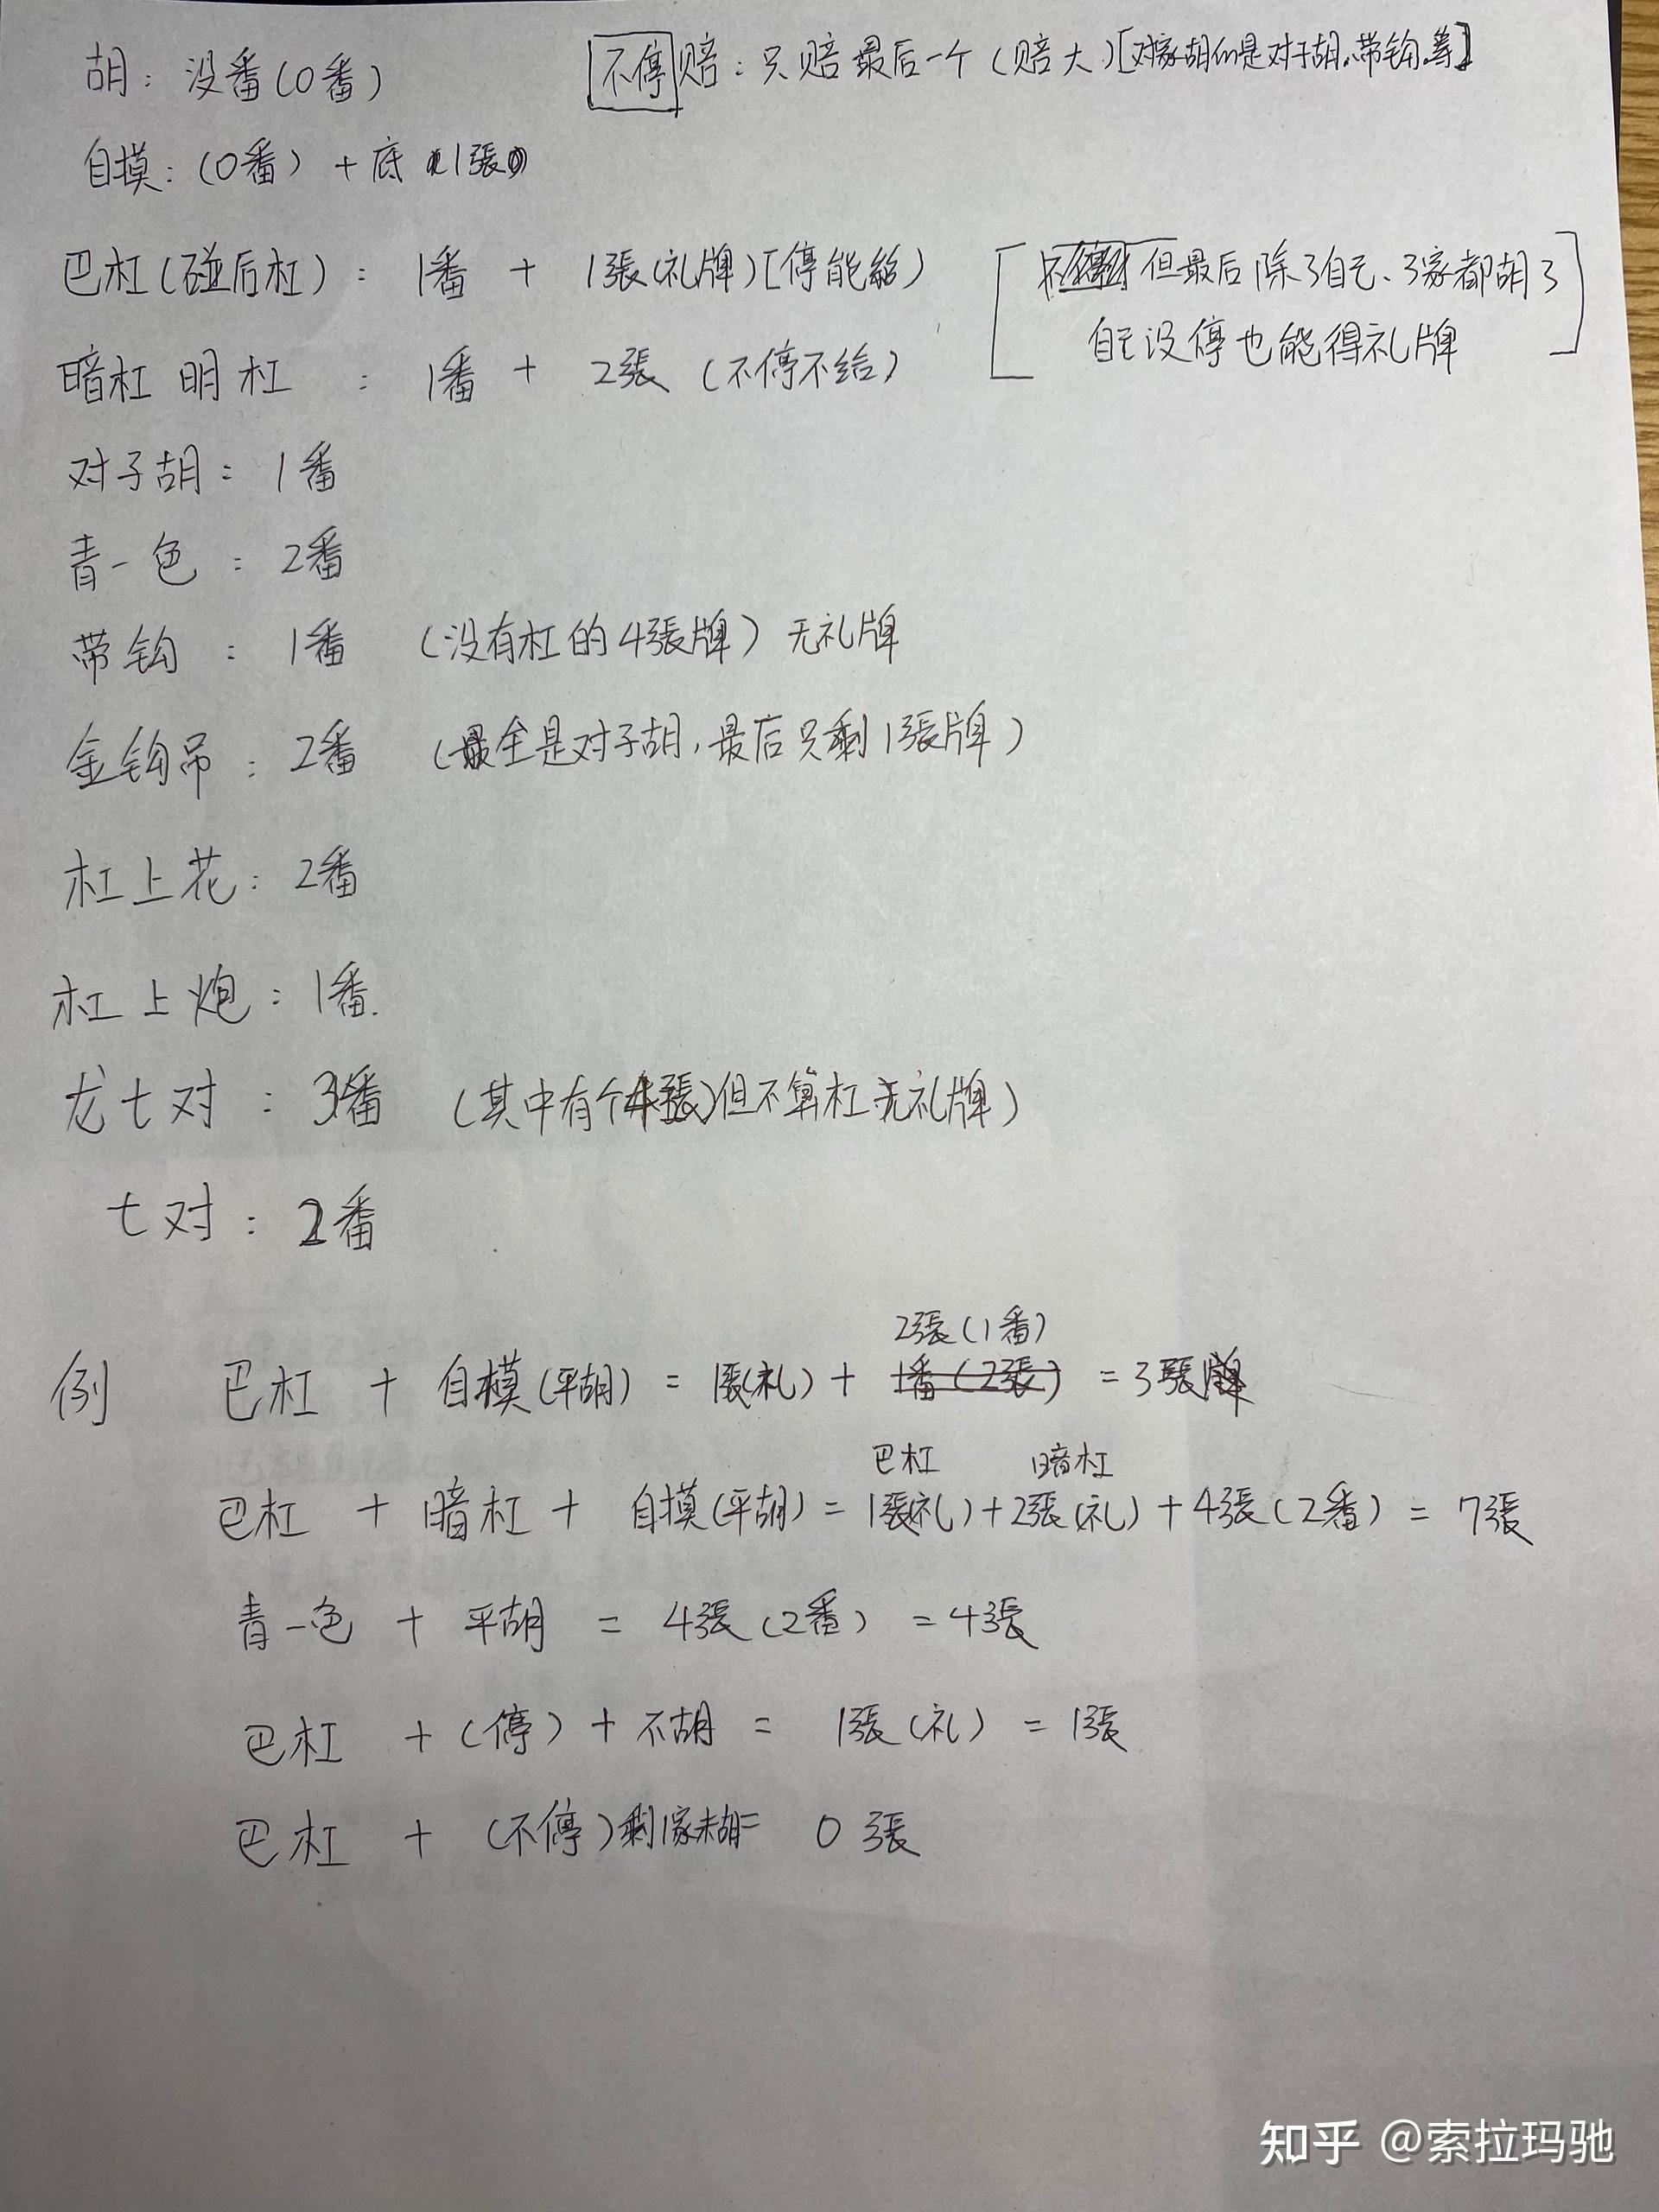 胡：没番(0番)
不停赔：只赔最后一个(赔大)[对家胡的是对子胡、带钩等]
自摸：(0番)+底 1張
巴杠(碰后杠)：1番 + 1張(礼牌)[停能給)
[不停 但最后除了自己、3家都胡了
自己没停也能得礼牌]
暗杠 明杠 ： 1番 + 2張 (不停不给)
对子胡：1番
青一色：2番
带钩：1番 (没有杠的4張牌) 无礼牌
金钩吊：2番 (全是对子胡,最后只剩1張牌)
杠上花：2番
杠上炮：1番.
龙七对：3番 (其中有个4張)但不算杠无礼牌)
七对：2番
2張(1番)
例 巴杠 + 自摸(平胡) = 1張(礼) + 1番(2張) = 3張牌
巴杠 暗杠
巴杠 + 暗杠 + 自摸(平胡) = 1張(礼)+2張(礼)+4張(2番) = 7張
青一色 + 平胡 = 4張(2番) = 4張
巴杠 +(停)+不胡 = 1張(礼) = 1張
巴杠 + (不停)剩1家未胡= 0張
知乎 @索拉玛驰